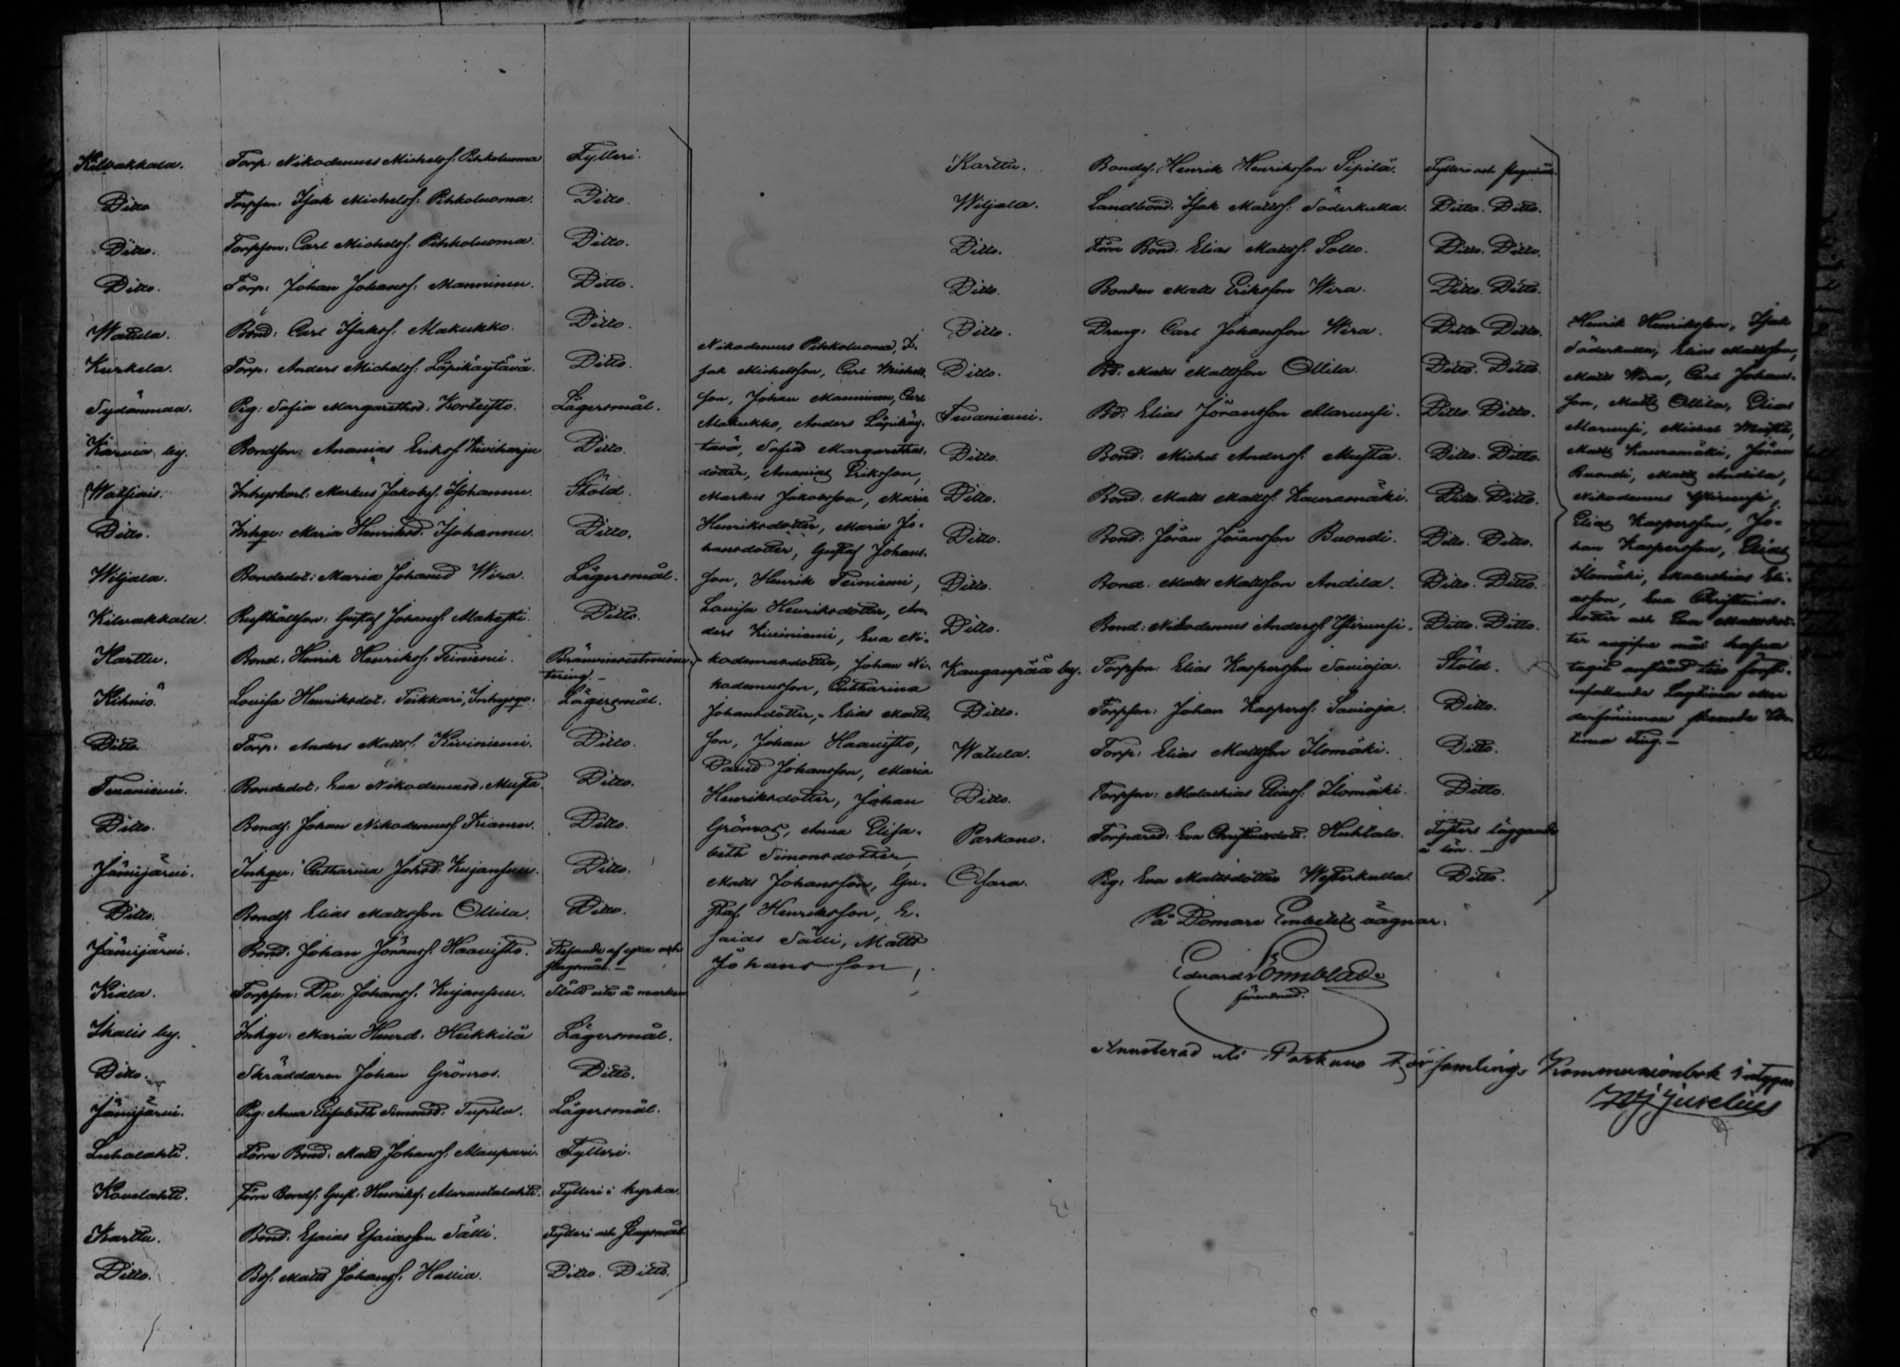 Kilwakkala. Torp: Nikodemus Michelsf. Pihkoluoma Fylleri.
Ditto Torpson: Isak Michelsf. Pihkoluoma. Ditto.
Ditto. Torpson. Carl Michelsf. Pihkoluoma. Ditto.
Ditto. Torp: Johan Johansf. Manninen. Ditto.
Watula. Bond: Carl Isaksf. Makukko. Ditto.
Kurkela. Torp: Anders Michelsf. Läpikäytävä. Ditto.
Sydänmaa. Pig: Sofia Margarethad. Korteisto. Lägersmål.
Karvia by. Bondson: Ananias Eriksf. Kiviharju Ditto.
Inhyskarl. Markus Jakobsf. Ishommu. Stöld.
Ditto. Inhqv: Maria Henriksd. Ishommu. Ditto.
Wiljala. Bondedot: Maria Johansd Wira. Lägersmål.
Kilwakkala. Gustaf Johansf. Ditto.
Karttu. Bond. Henrik Henriksf. Teiniemi.
Kihniö. Lovisa Henriksdot. Inhysqv. Lägersmål.
Ditto Torp. Anders Mattsf. Kiviniemi. Ditto.
Tevaniemi. Bondedot. Eva Nikodemusd. Musta Ditto.
Ditto. Bondf. Johan Nikodemusf. Ditto.
Jämijärvi. Inhqv. Catharina Johsd. Kujansuu. Ditto.
Ditto. Bondf. Elias Mattsson Ollila. Ditto.
Jämijärvi. Bond. Johan Jöransf. Haavisto.
Torpson: Johansf. Kujansuu. Stöld
Ikalis by. Inhqv. Maria Henrd. Heikkilä Lägersmål.
Ditto. Skräddaren Johan Grönros. Ditto.
Jämijärvi. Pig: Anna Elisabeth Simonsd. Lägersmål.
Luhalahti. Förre Bond. Matts Johansf. Fylleri.
Kovelahti. förre Bondf. Gust. Henriksf. Fylleri i kyrka.
Karttu. Bond. Esaias Esaiasson Sälli. Fylleri och Slagsmål
Ditto. Bf. Matts Johansf. Ditto. Ditto.
Nikodemus Pihkoluoma, I-
sak Michelsson, Carl Michels
son, Johan Manninen, Carl
Makukko, Anders Läpikäy-
tävä, Sofia Margaretha-
dotter, Ananias Eriksson,
Markus Jakobsson, Maria
Henriksdotter, Maria Jo-
hansdotter, Gustaf Johans-
son, Henrik Teiniemi,
Lovisa Henriksdotter, An-
ders Kiviniemi, Eva Ni-
kodemusdotter, Johan Ni-
kodemusson, Catharina
Johansdotter, Elias Matts
son, Johan Haavisto,
David Johansson, Maria
Henriksdotter, Johan
Grönros, Anna Elisa-
beth Simonsdotter,
Matts Johansson, Gu-
staf Henriksson, E-
saias Sälli, Matts
Johansson,
Karttu. Bondf. Henrik Henriksson Sipilä. Fylleri och slagsmål
Wiljala. Landbond. Isak Mattsf. Söderkulla. Ditto. Ditto.
Ditto. förre Bond. Elias Mattsf. Ditto. Ditto.
Ditto. Bonden Matts Eriksson Wira. Ditto. Ditto.
Ditto. Dreng: Carl Johansson Wira. Ditto. Ditto.
Ditto. Bd. Matts Mattsson Ollila. Ditto. Ditto.
Tevaniemi. Bd. Elias Jöransson Ditto. Ditto.
Ditto. Bond. Michel Andersf. Musta. Ditto. Ditto.
Ditto. Bond. Matts Mattsf. Kauramäki. Ditto. Ditto.
Ditto. Bond. Jöran Jöransson Ditto. Ditto.
Ditto. Bond. Matts Mattsson Andila. Ditto. Ditto.
Ditto. Bond. Nikodemus Andersf. Ditto. Ditto.
Kanganpää by. Torpson. Elias Kaspersson Savioja. Stöld.
Ditto. Torpson: Johan Kaspersf. Savioja. Ditto.
Watula. Torp: Elias Mattsson Ilomäki. Ditto.
Ditto. Torpson: Malachias Eliasf. Ilomäki. Ditto.
Parkano. Eva Christiansdott. Huhtala. Fosters läggande
å lön.
Osara. Pig. Eva Mattsdotter Westerkulla. Ditto.
På Domare Embetets vägnar.
Eduard Lönnblad.
Henrik Henriksson, Isak
Söderkulla, Elias Mattsson,
Matts Wira, Carl Johans-
son, Matts Ollila, Elias
Michel Musta,
Matts Kauramäki, Jöran
Matts Andila,
Nikodemus
Elias Kaspersson, Jo-
han Kaspersson, Elias
Ilomäki, Malachias Eli-
asson, Eva Christians-
dotter och Eva Mattsdot-
ter angifne mål
Ting.
Annoterad uti Parkano Församlings Kommunionbok intygar